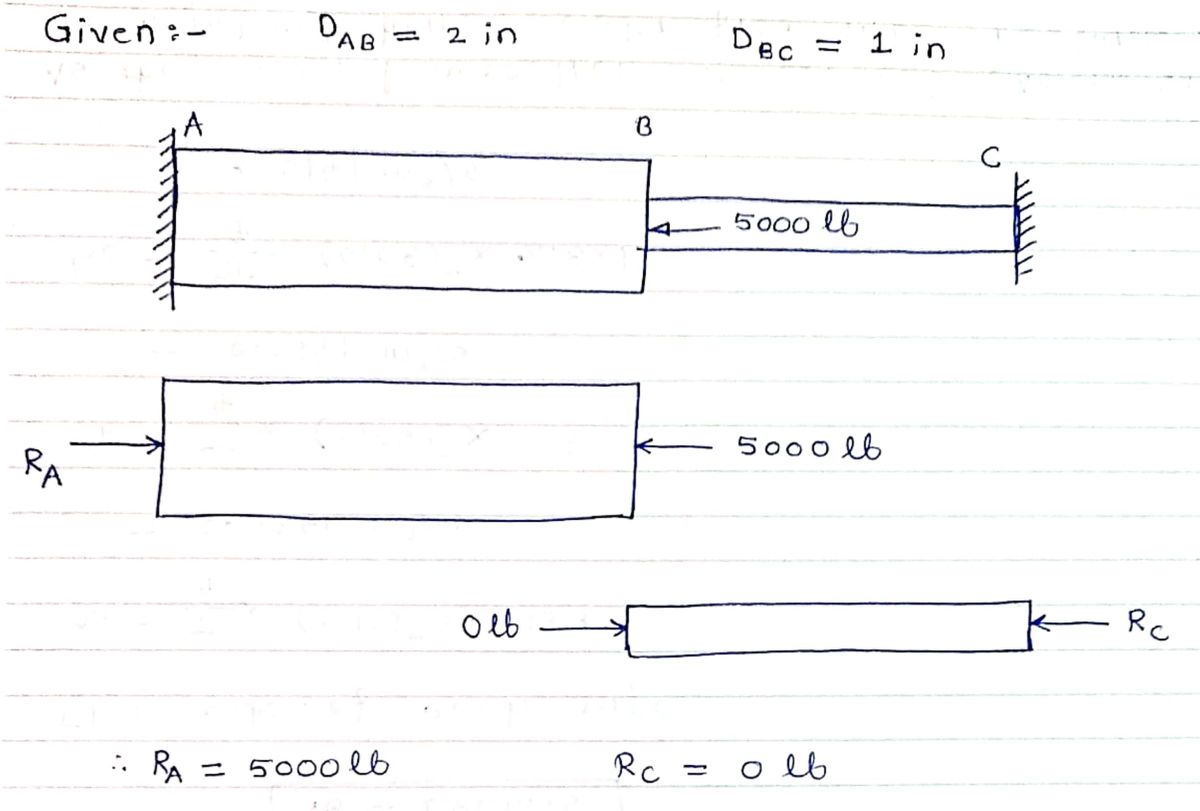 Given :- D_AB = 2 in D_BC = 1 in
A B
C
5000 lb
R_A 5000 lb
0 lb R_C
∴ R_A = 5000 lb R_C = 0 lb